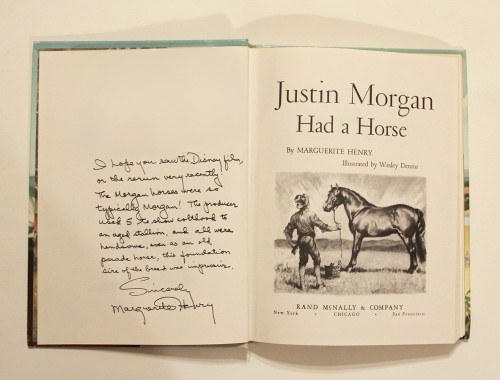 I hope you saw the Disney film,
or the rerun very recently.
The Morgan horses were so
typically Morgan! The producer
used 5 to show colthood to
an aged stallion, and all were
handsome, even as an old
parade horse, this foundation
sire of the breed was impressive.
Sincerely
Marguerite Henry
Justin Morgan
Had a Horse
By MARGUERITE HENRY
Illustrated by Wesley Dennis
RAND McNALLY & COMPANY
New York • CHICAGO • San Francisco